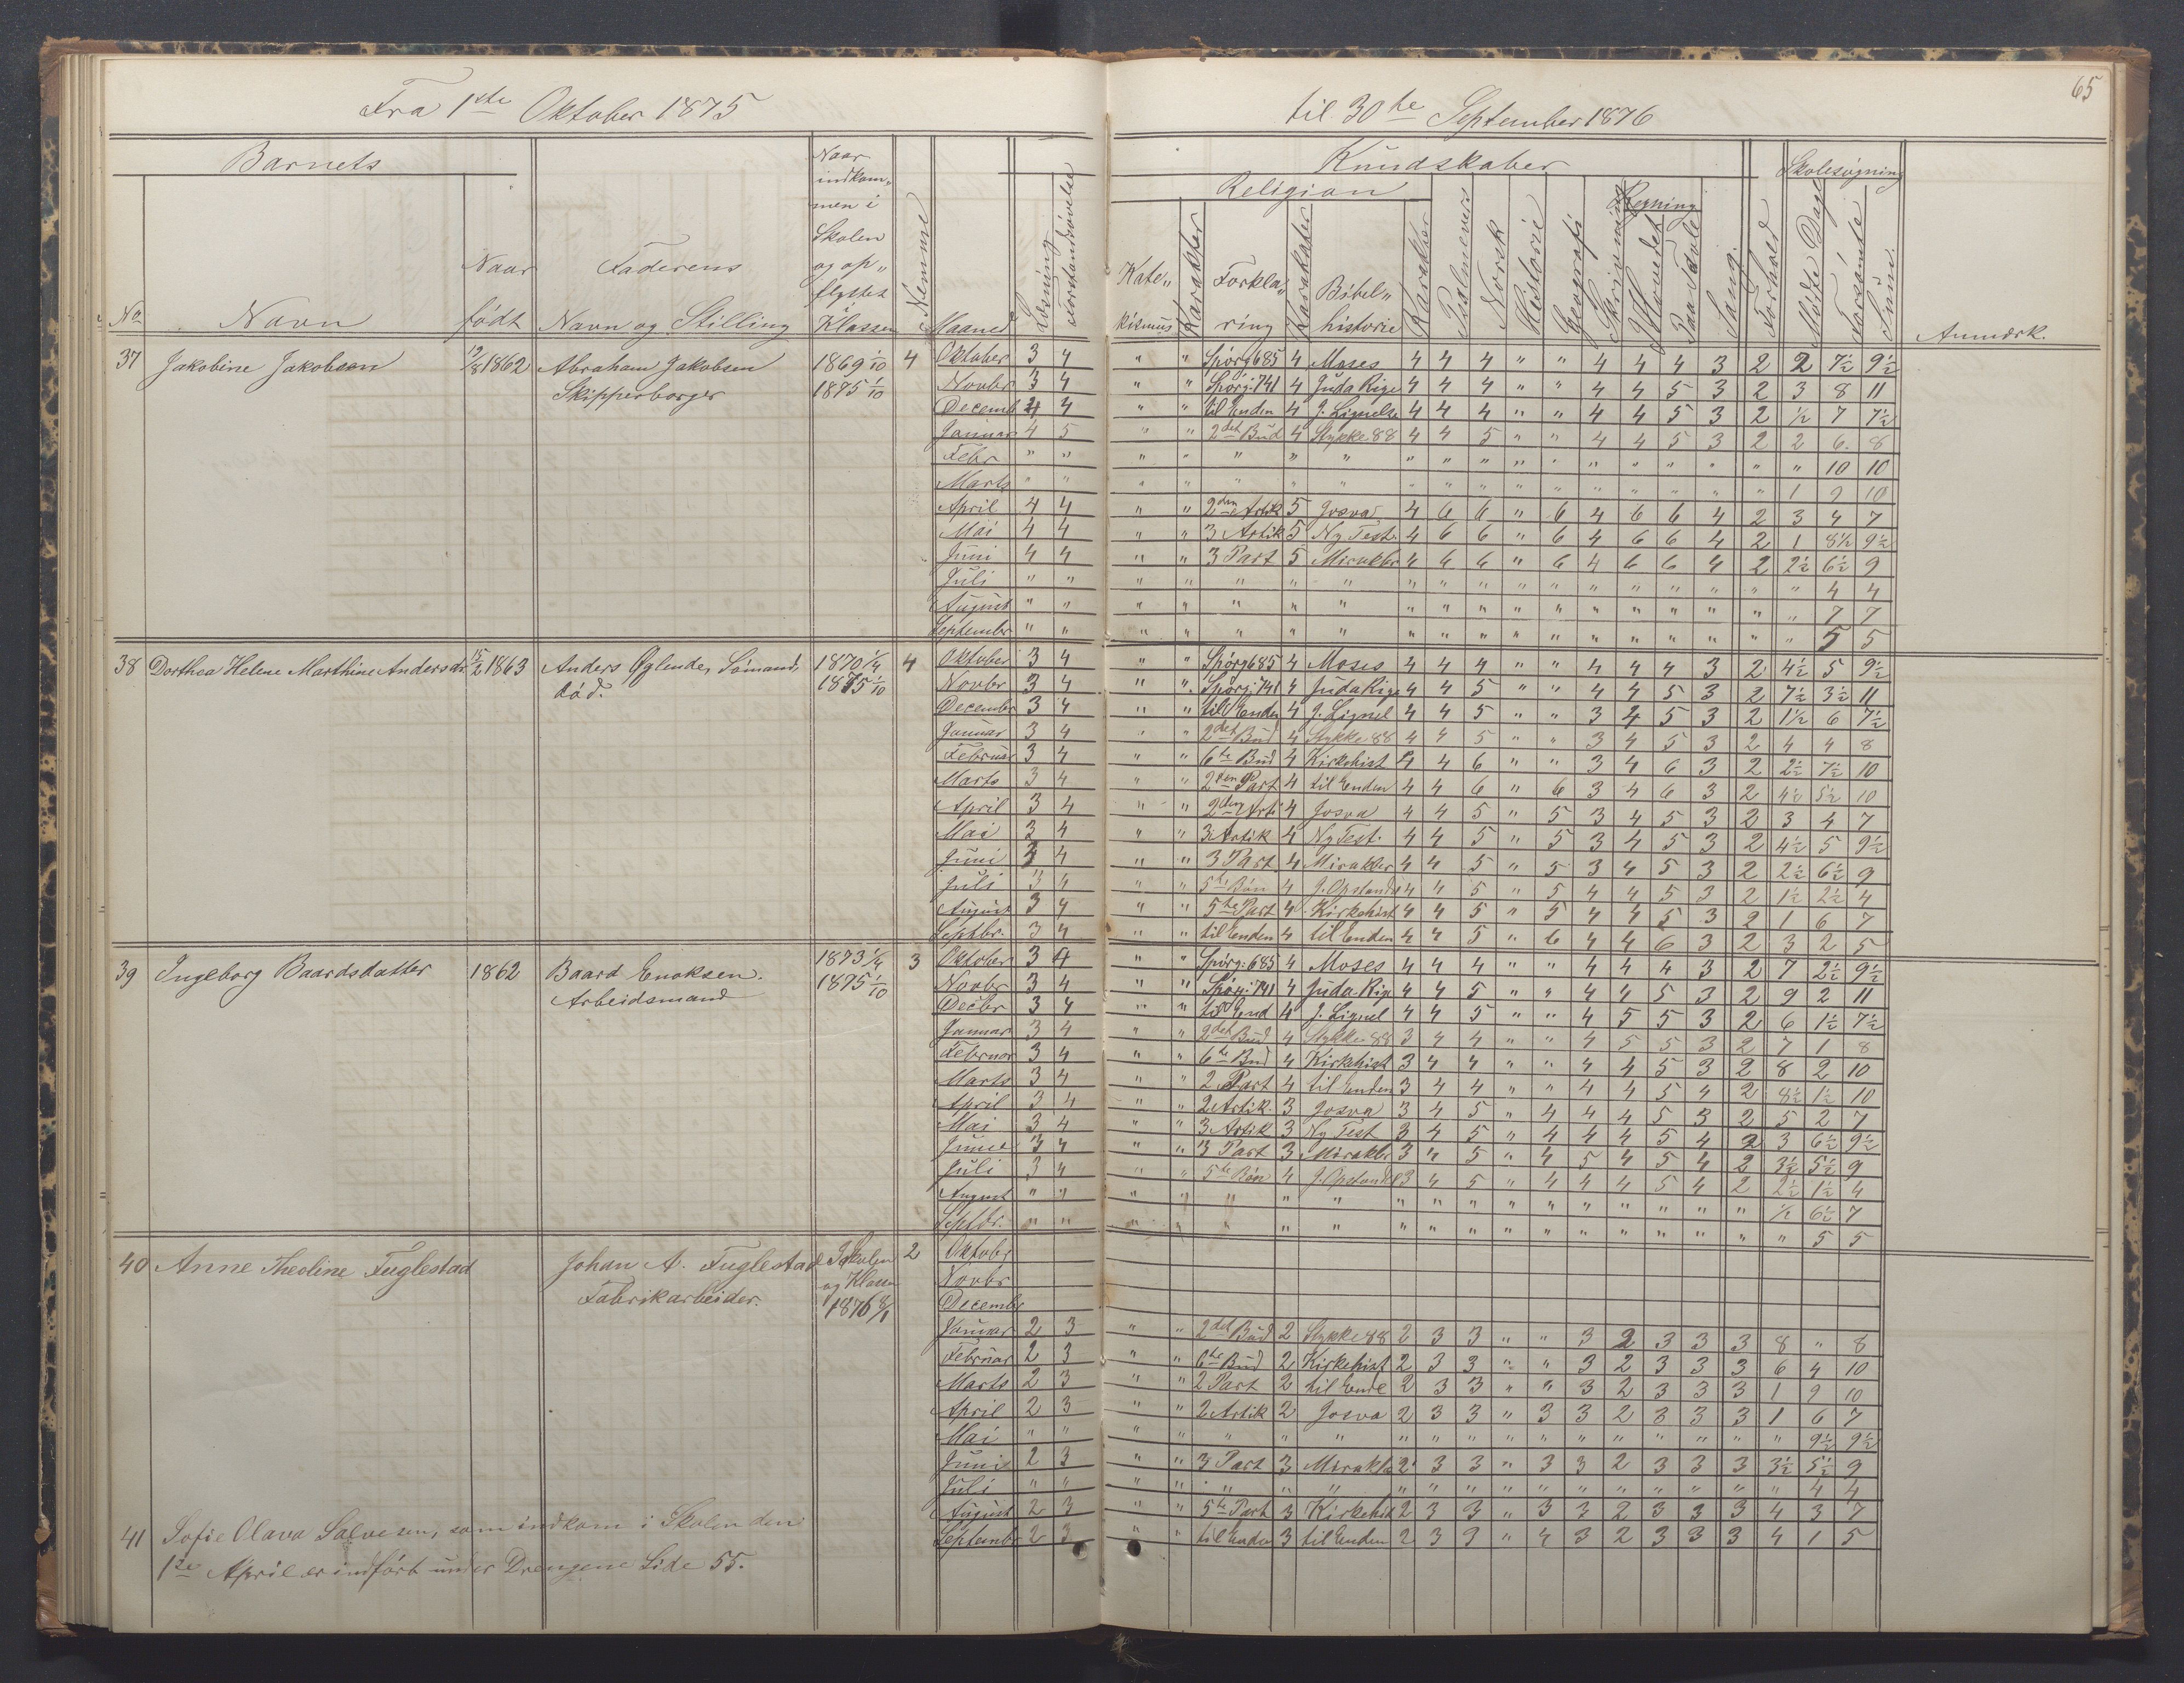 Fra 1ste Oktober 1875 til 30te September 1876
65
Barnets
Naar indkom„ men i Skolen og op„ flyttet Klassen
Kundskaber
Skolesøgning
Religion
Regning
No Navn Naar født Faderens Navn og Stilling Nemme Maaned Læsning Forstandsøvelse
Kate„ kismus Karakter Forkla„ ring Karakter Bibel„ historie Karakter Psalmevers Norsk Historie Geografi Skrivning I Hovedet Paa Tavle Sang. Forhold Mødte Dage Forsømte Sum. Anmærk.
37 Jakobine Jakobsen 19/8 1862 Abraham Jakobsen 1869 1/10 4 Oktober 3 4 " " Spörg 685 4 Moses 4 4 4 " " 4 4 4 3 2 2 7½ 9½
Skipperborger 1875 1/10 Novbr 3 4 " " Spörg: 741 4 Juda Rige 4 4 4 " " 4 4 5 3 2 3 8 11
Decemb 4 4 " " til Enden 4 J. Lignelse 4 4 4 " " 4 4 5 3 2 ½ 7 7½
Januar 4 5 " " 2det Bud 4 Stykke 88 4 4 5 " " 4 4 5 3 2 2 6 8
Febr " " " " " " " " " " " " " " " " " " 10 10
Marts " " " " " " " " " " " " " " " " " 1 9 10
April 4 4 " " 2den Artik 5 Josva 4 6 6 " 6 4 6 6 4 2 3 4 7
Mai 4 4 " " 3 Artik 5 Ny Test. 4 6 6 " 6 4 6 6 4 2 1 8½ 9½
Juni 4 4 " " 3 Part 5 Mirakler 4 6 6 " 6 4 6 6 4 2 2½ 6½ 9
Juli " " " " " " " " " " " " " " " " " " 4 4
August " " " " " " " " " " " " " " " " " " 7 7
September " " " " " " " " " " " " " " " " " " 5 5
38 Dorthea Helene Marthine Andersdr. 15/2 1863 Anders Øglende, Sömand, 1870 1/4 4 Oktober 3 4 " " Spörg 685 4 Moses 4 4 4 " " 4 4 4 3 2 4½ 5 9½
död. 1875 1/10 Novbr 3 4 " " Spörg: 741 4 Juda Rige 4 4 5 " " 4 4 5 3 2 7½ 3½ 11
December 3 4 " " til Enden 4 J. Lignel 4 4 5 " " 3 4 5 3 2 1½ 6 7½
Januar 3 4 " " 2det Bud 4 Stykke 88 4 4 5 " " 3 4 5 3 2 4 4 8
Februar 3 4 " " 6te Bud 4 Kirkehist 4 4 6 " " 3 4 6 3 2 2½ 7½ 10
Marts 3 4 " " 2den Part 4 til Enden 4 4 6 " 6 3 4 6 3 2 4½ 5½ 10
April 3 4 " " 2den Arti 4 Josva 4 4 5 " 5 3 4 5 3 2 3 4 7
Mai 3 4 " " 3 Artik 4 Ny Test. 4 4 5 " 5 3 4 5 3 2 4½ 5 9½
Juni 3 4 " " 3 Part 4 Mirakler 4 4 5 " 5 3 4 5 3 2 2½ 6½ 9
Juli 3 4 " " 5te Bön 4 J. Opstands 4 4 5 " 5 4 4 5 3 2 1½ 2½ 4
August 3 4 " " 5te Part 4 Kirkehist 4 4 5 " 5 4 4 5 3 2 1 6 7
Septbr. 3 4 " " til Enden 4 til Enden 4 4 5 " 6 4 4 6 3 2 3 2 5
39 Ingeborg Baardsdatter 1862 Baard Enoksen. 1873 1/4 3 Oktober 3 4 " " Spörg: 685 4 Moses 4 4 4 " " 4 4 4 3 2 7 2½ 9½
Arbeidsmand 1875 1/10 Novbr 3 4 " " Spörg: 741 4 Juda Rige 4 4 5 " " 4 4 5 3 2 9 2 11
Decbr 3 4 " " til End 4 J. Lignel 4 4 5 " " 4 5 5 3 2 6 1½ 7½
Januar 3 4 " " 2det Bud 4 Stykke 88 3 4 4 " " 4 5 5 3 2 7 1 8
Februar 3 4 " " 6te Bud 4 Kirkehist 3 4 4 " " 4 4 5 3 2 8 2 10
Marts 3 4 " " 2 Part 4 til Enden 3 4 4 " " 4 4 5 4 2 8½ 1½ 10
April 3 4 " " 2 Artik. 3 Josva 3 4 5 " 4 4 4 5 3 2 5 2 7
Mai 3 4 " " 3 Artik 3 Ny Test 3 4 5 " 4 4 4 5 4 2 3 6½ 9½
Juni 3 4 " " 3 Part 3 Mirakler 3 4 5 " 4 5 4 5 4 2 3½ 5½ 9
Juli 3 4 " " 5te Bön 4 J. Opstands 3 4 5 " 4 4 4 5 4 2 2½ 1½ 4
August " " " " " " " " " " " " " " " " " ½ 6½ 7
Septbr. " " " " " " " " " " " " " " " " " " 5 5
40 Anne Theoline Fuglestad Johan A. Fuglestad I Skolen 2 Oktobr
og Klassen Novbr
Fabrikarbeider. 1876 8/1 December
Januar 2 3 " " 2det Bud 2 Stykke 88 2 3 3 " " 3 2 3 3 3 8 " 8
Februar 2 3 " " 6te Bud 2 Kirkehist 2 3 3 " " 3 2 3 3 3 6 4 10
Marts 2 3 " " 2 Part 2 til Ende 2 3 3 " " 3 2 3 3 3 1 9 10
April 2 3 " " 2 Artik 2 Josva 2 3 3 " 3 3 2 3 3 3 1 6 7
Mai " " " " " " " " " " " " " " " " " " 9½ 9½
Juni 2 3 " " 3 Part 3 Mirakle 2 3 3 " 3 3 2 3 3 3 3½ 5½ 9
Juli " " " " " " " " " " " " " " " " " " 4 4
August 2 3 " " 5te Part 3 Kirkehist 2 3 3 " 3 3 2 3 3 3 4 3 7
September 2 3 " " til Enden 3 til Enden 2 3 3 " 4 3 2 3 3 3 4 1 5
41 Sofie Olava Salvesen, som indkom i Skolen den
1ste April er indfört under Drengene Side 55.